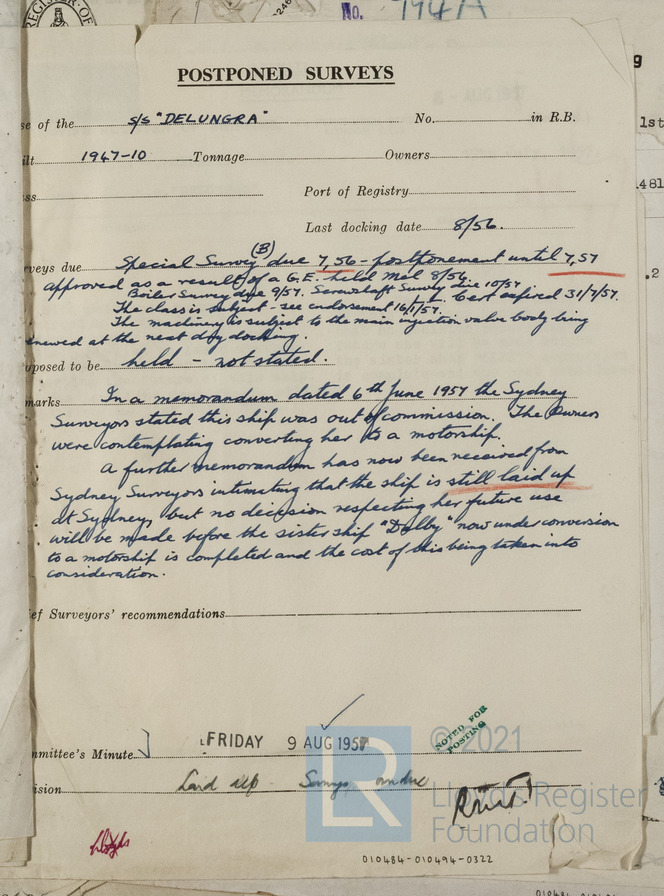 REGISTER OF
No. 794A
POSTPONED SURVEYS
se of the S/S "DELUNGRA" No. in R.B.
ilt 1947-10 Tonnage Owners
ss Port of Registry
Last docking date 8/56.
(B)
rveys due Special Survey due 7,56 - postponement until 7,57
approved as a result of a G.E. held Mel 8/56.
Boiler Survey due 9/57. Screwshaft Survey due 10/57
The class is subject - see endorsement 16/1/57. L.L. Cert expired 31/7/57.
The machinery is subject to the main injection valve body being
enewed at the next dry docking.
oposed to be held - not stated.
marks In a memorandum dated 6th June 1957 the Sydney
Surveyors stated this ship was out of commission. The Owners
were contemplating converting her to a motorship.
A further memorandum has now been received from
Sydney Surveyors intimating that the ship is still laid up
at Sydney, but no decision respecting her future use
will be made before the sister ship "Dalby" now under conversion
to a motorship is completed and the cost of this being taken into
consideration.
ief Surveyors' recommendations
NOTED FOR
POSTING
mmittee's Minute FRIDAY 9 AUG 1957
ision Laid up Surveys overdue
© 2021
LR
Lloyd's Register
Foundation
010484-010494-0322
g
1st
481
.2